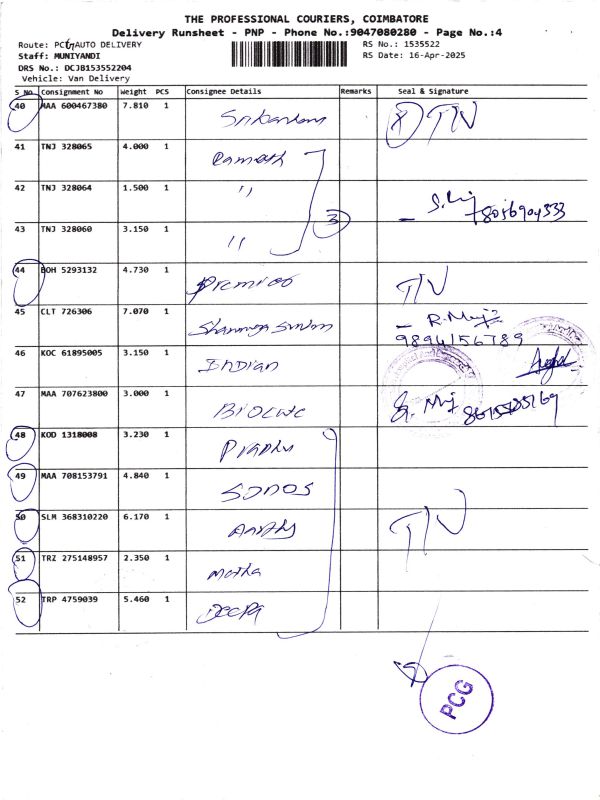 THE PROFESSIONAL COURIERS, COIMBATORE
Delivery Runsheet - PNP - Phone No.:9047080280 - Page No.:4
Route: PCG AUTO DELIVERY RS No.: 1535522
Staff: MUNIYANDI RS Date: 16-Apr-2025
DRS No.: DCJB153552204
Vehicle: Van Delivery
S No Consignment No Weight PCS Consignee Details Remarks Seal & Signature
40 MAA 600467380 7.810 1 T/V
41 TNJ 328065 4.000 1 Ramesh
42 TNJ 328064 1.500 1 "
3
8056904333
43 TNJ 328060 3.150 1 "
44 BOH 5293132 4.730 1 Premier T/V
45 CLT 726306 7.070 1
9894156789
46 KOC 61895005 3.150 1 Indian
47 MAA 707623800 3.000 1
48 KOD 1318008 3.230 1 Prabhu
49 MAA 708153791 4.840 1 SONOS
50 SLM 368310220 6.170 1 Aarthy T/V
51 TRZ 275148957 2.350 1 Motha
52 TRP 4759039 5.460 1 Deepa
PCG